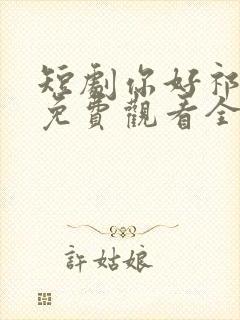 短劇你好祁
免費觀看全
許姑娘